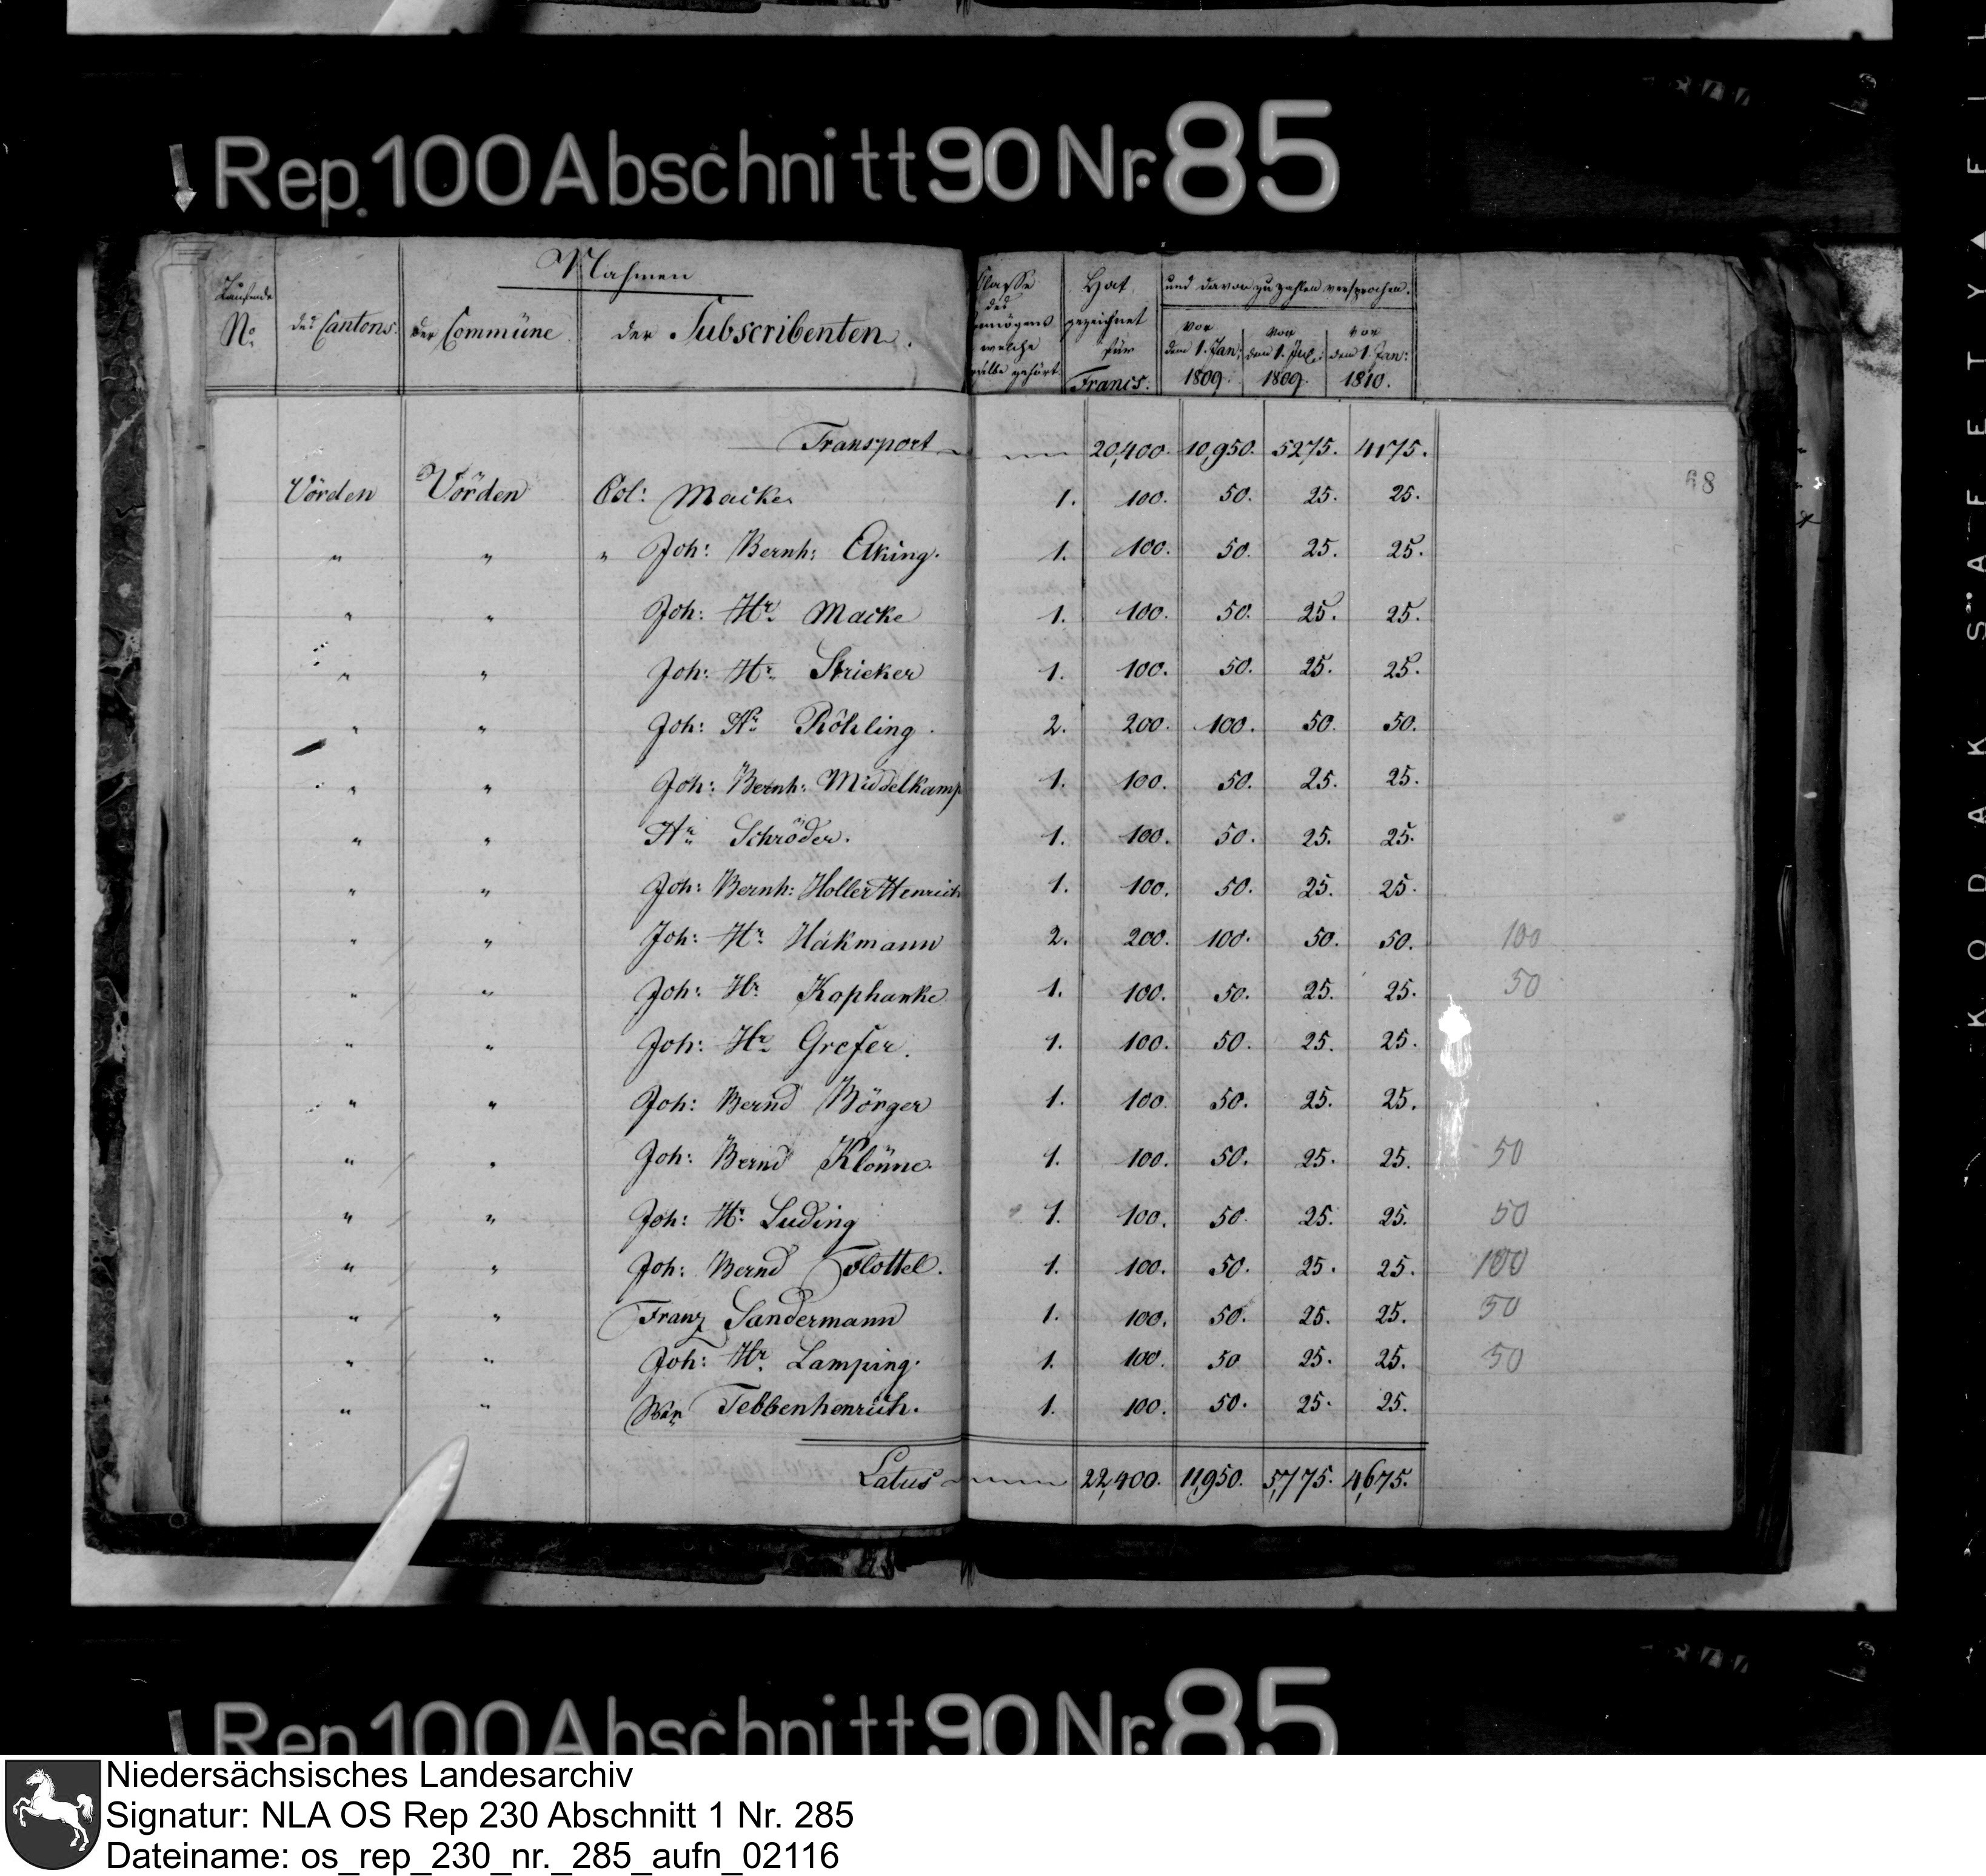 Rep. 100 Abschnitt 90 Nr. 85
Nahmen
Laufende No
des Cantons.
der Commüne
der Subscribenten.
Classe des Vermögens welche
gehört
Hat gezeichnet für Francs.
und davon zu zahlen versprochen.
vor dem 1. Jan: 1809.
vor dem 1. Jul: 1809.
vor dem 1. Jan: 1810.
Transport 20,400. 10,950. 5275. 4175.
68
Vörden Vörden Col: Macke 1. 100. 50. 25. 25.
" " " Joh: Bernh: Eking. 1. 100. 50. 25. 25.
" " Joh: Hr. Macke 1. 100. 50. 25. 25.
" " Joh: Hr. Stricker 1. 100. 50. 25. 25.
" " Joh: Hr. Röhling. 2. 200. 100. 50. 50.
" " Joh: Bernh: Middelkamp 1. 100. 50. 25. 25.
" " Hr. Schröder. 1. 100. 50. 25. 25.
" " Joh: Bernh: Holler Henrich 1. 100. 50. 25. 25.
" " Joh: Hr. Hakmann 2. 200. 100. 50. 50. 100
" " Joh: Hr. Kophanke 1. 100. 50. 25. 25. 50
" " Joh: Hr. Grefer. 1. 100. 50. 25. 25.
" " Joh: Bernd Börger 1. 100. 50. 25. 25.
" " Joh: Bernd Klönne. 1. 100. 50. 25. 25. 50
" " Joh: Hr. Luding 1. 100. 50. 25. 25. 50
" " Joh: Bernd Flottel. 1. 100. 50. 25. 25. 100
" " Franz Sandermann 1. 100. 50. 25. 25. 50
" " Joh: Hr. Lamping. 1. 100. 50 25. 25. 50
" " Tebbenhenrich. 1. 100. 50. 25. 25.
Latus 22,400. 11,950. 5,775. 4,675.
Rep. 100 Abschnitt 90 Nr. 85
KODAK SAFETY
Niedersächsisches Landesarchiv
Signatur: NLA OS Rep 230 Abschnitt 1 Nr. 285
Dateiname: os_rep_230_nr._285_aufn_02116